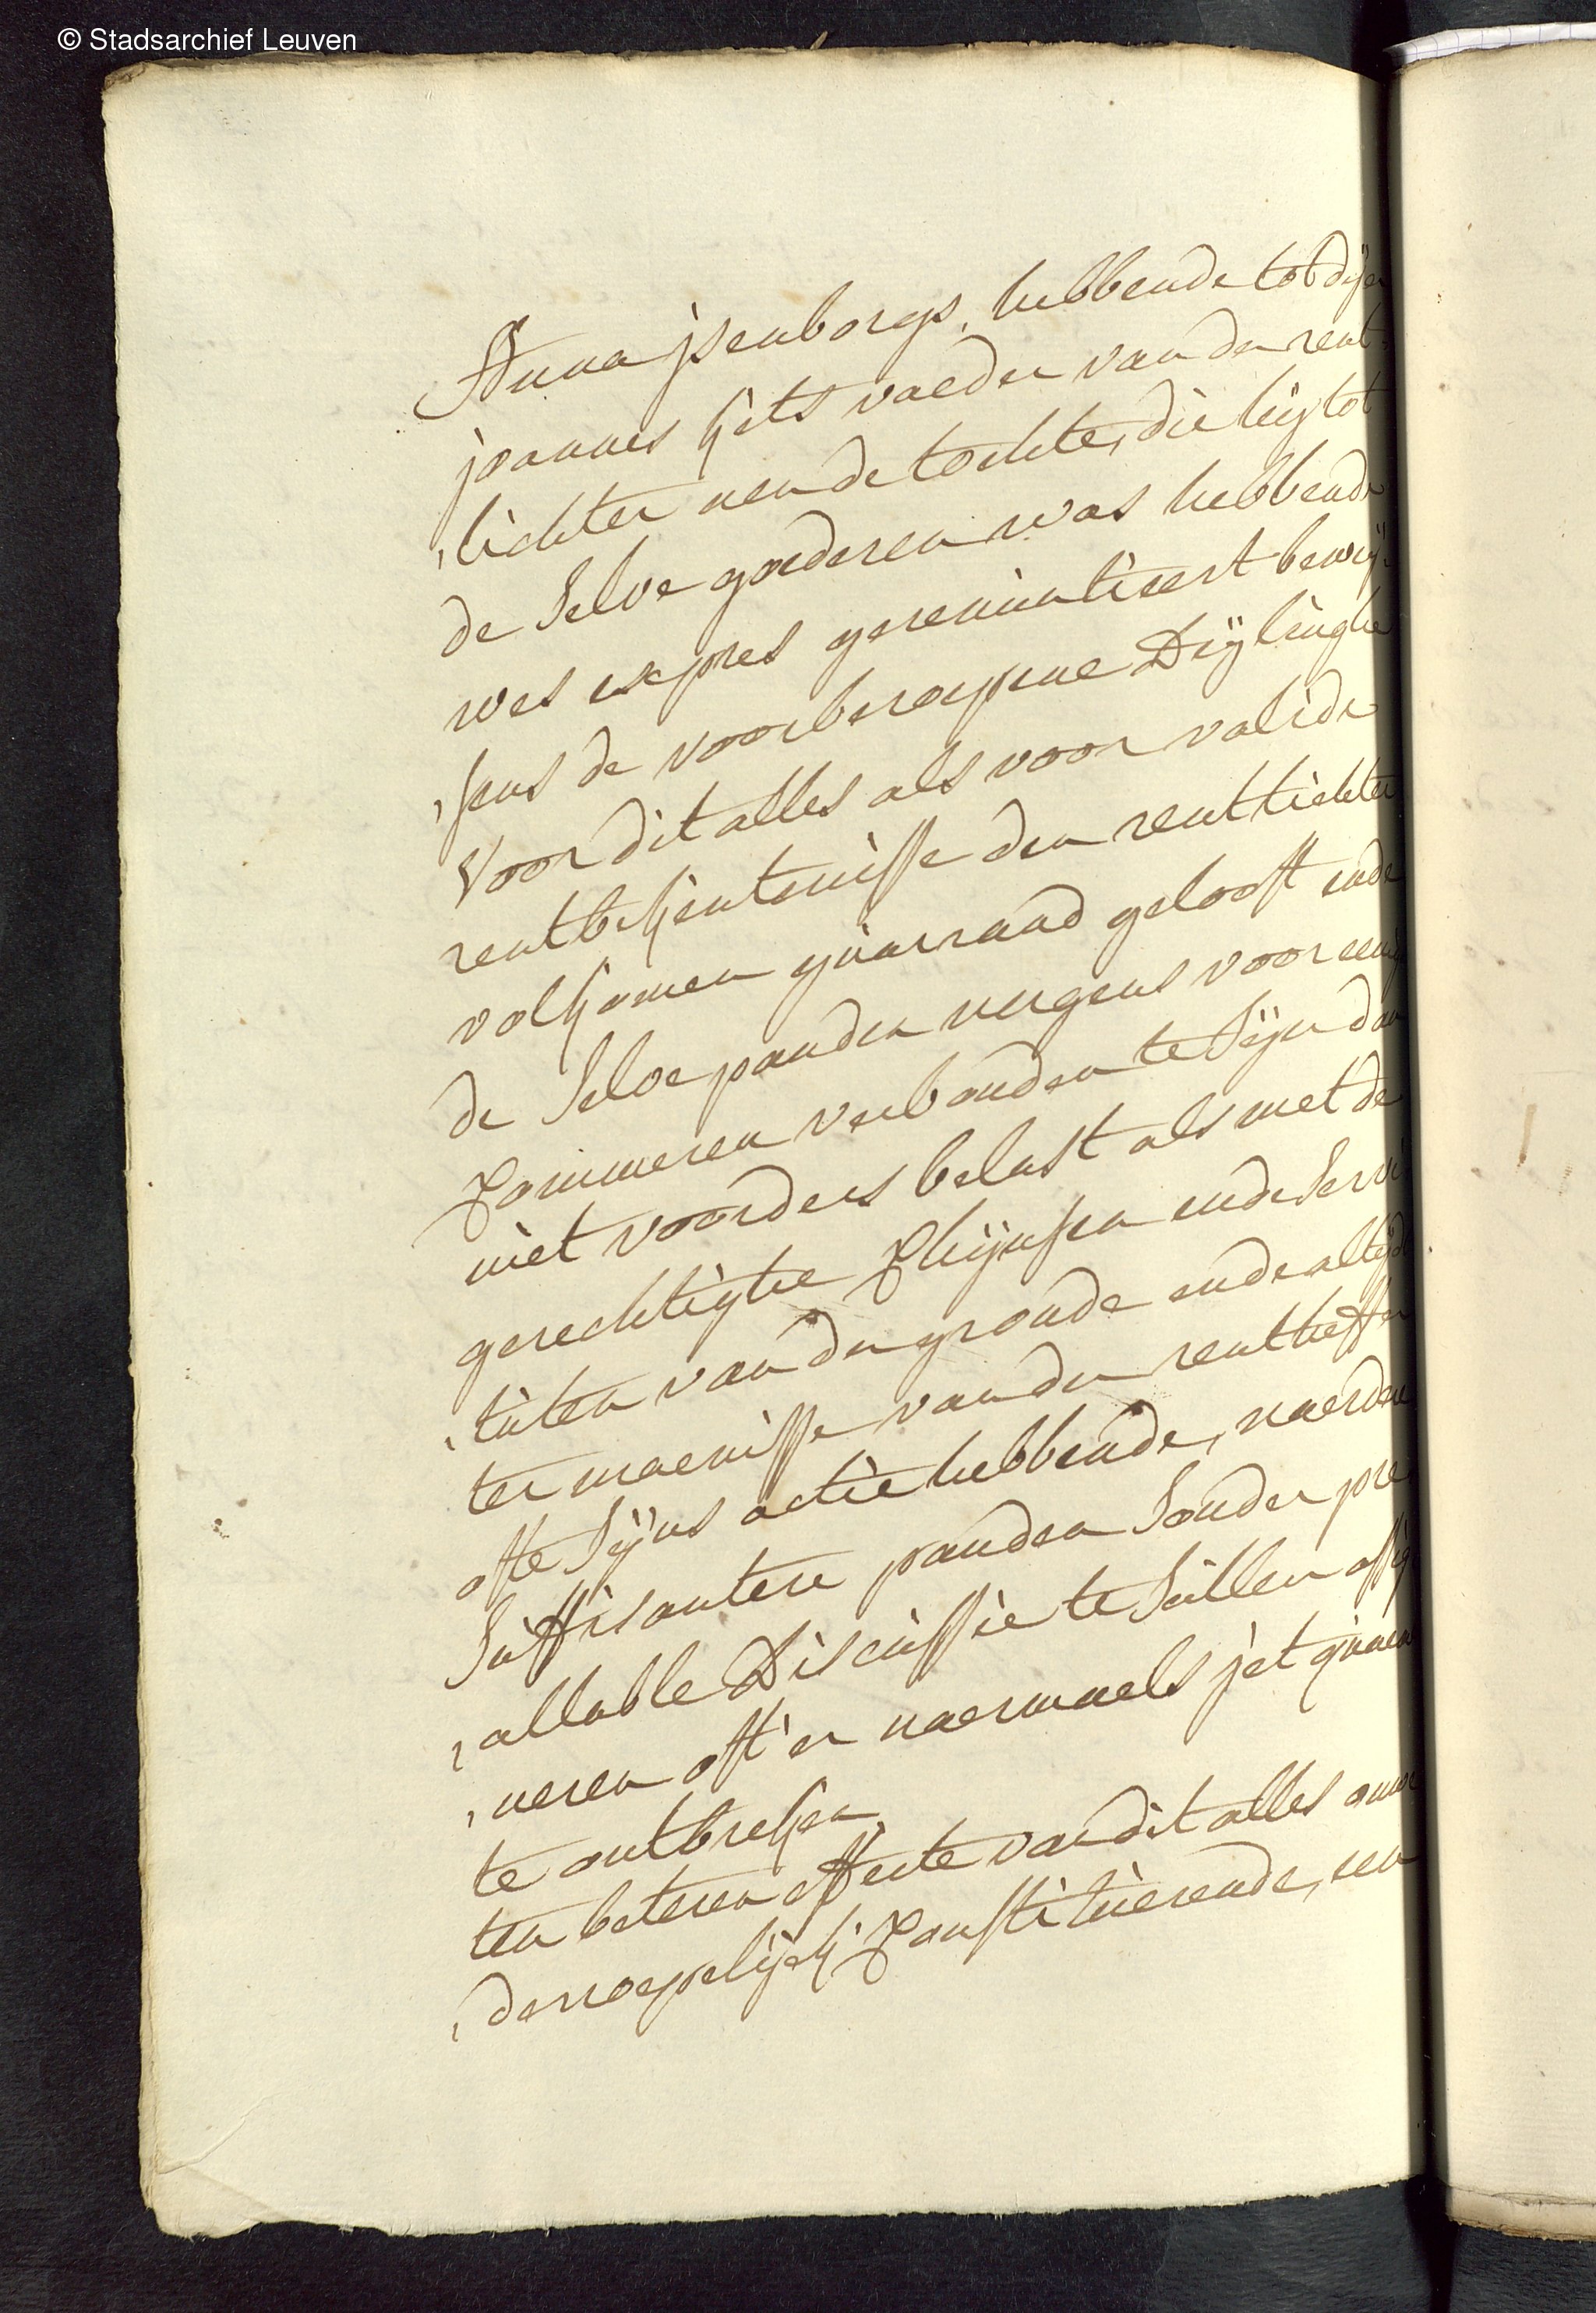 © Stadsarchief Leuven
Anna jsenborgs, hebbende tot dije
joannes Kets vaeder van den rent
lichter aen de tochte, die hij tot
de selve goederen was hebbende
wes expres gerenuntieert bewij
sens de voorberoepene Deijlinghe
Voor dit alles als voor valide
rentbekentenisse den rentlichter
volkomen guarrand gelooft ende
de selve panden nergens voor eenig
Commeren verbonden te sijn dan
niet voorders belast als met de
gerechtighe Chijnsen ende servi
tuten van den gronde ende altijd
ter maenisse van den rentheffer
ofte sijns actie hebbende, naerdere
suffisantere panden sonder pre
allable Discussie te sullen assig
neren oft er naermaels jet quaem
te ontbreken
ten beteren effecte van dit alles onwe
derroepelijck Constituerende, een